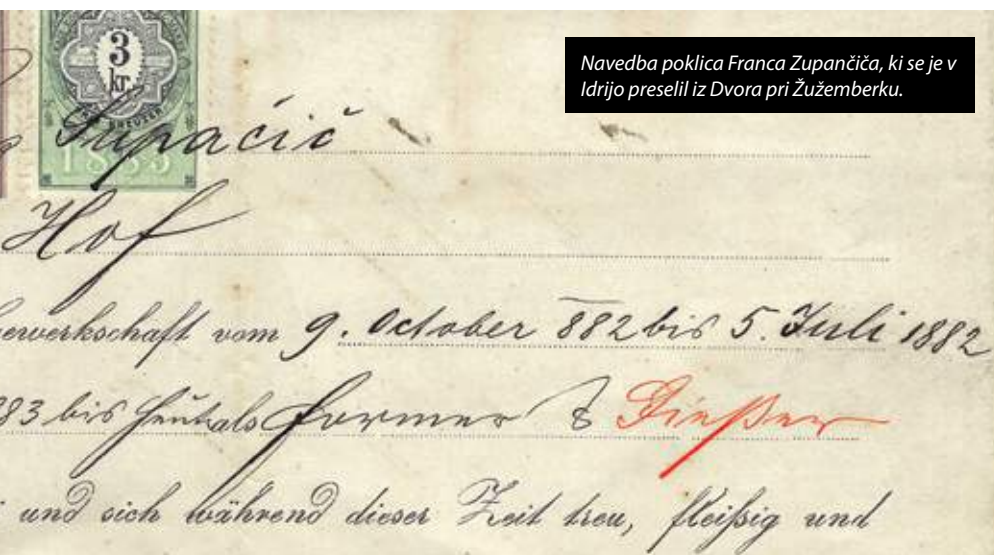 Navedba poklica Franca Zupančiča, ki se je v
Idrijo preselil iz Dvora pri Žužemberku.
3
kr.
KREUZER
1885
Zupačić
Hof
gewerkschaft vom 9. October 882 bis 5. Juli 1882
883 bis heut als Former & Gießer
und sich während dieser Zeit treu, fleißig und